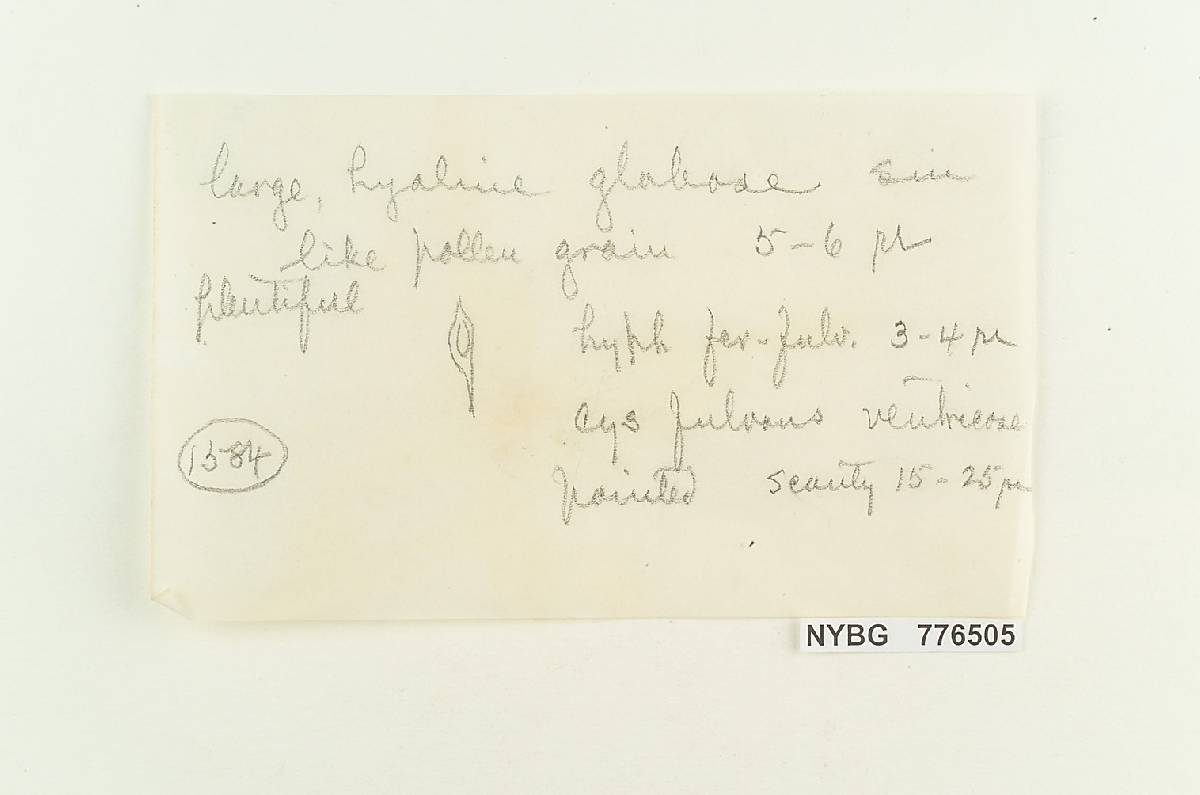 large, hyaline globose sm
like pollen grain 5-6 μ
plentiful
hyph fer-fulv. 3-4 μ
cys fulvous ventricose
pointed scanty 15-25 μ
1584
NYBG 776505